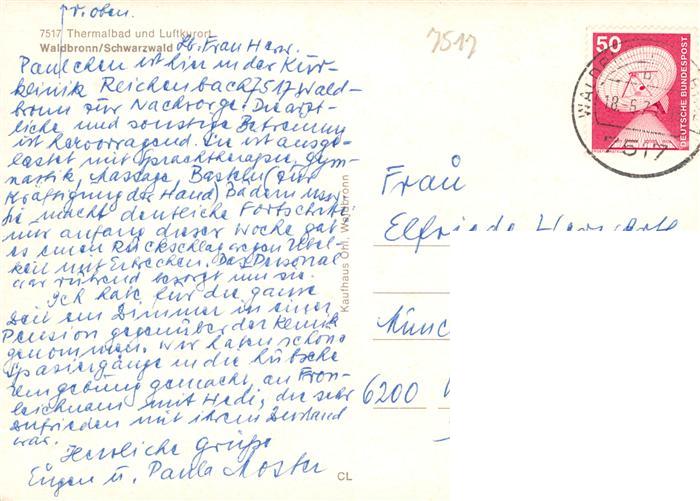 7517 Thermalbad und Luftkurort
Waldbronn/Schwarzwald
Lb. Frau Herr.
Paulchen ist hier in der Kur-
klinik Reichenbach 7517 Wald-
bronn zur Nachsorge. Die ärzt-
liche und sonstige Betreuung
ist hervorragend. Sie ist ausge-
lastet mit Sprachtherapie, Gym-
nastik, Massage, Basteln (zur
Kräftigung der Hand) Bädern usw.
Sie macht deutliche Fortschritte
nur anfang dieser Woche gab
es einen Rückschlag wegen Übel-
keit mit Erbrechen. Das Personal
war rührend besorgt um sie.
Ich habe für die ganze
Zeit ein Zimmer in einer
Pension gegenüber der Klinik
genommen. Wir haben schöne
Spaziergänge in die hübsche
Umgebung gemacht, an Fron-
leichnam mit Hedi, die sehr
zufrieden mit ihrem Zustand
war.
Herzliche Grüße
Eugen u. Paula Moster
Kaufhaus Ohl, Waldbronn
CL
7517
50
DEUTSCHE BUNDESPOST
18.5.
7517
Frau
Elfriede
6200